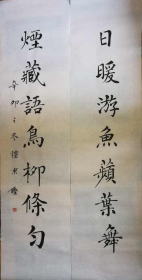 日暖游魚蘋葉舞
煙藏語鳥柳條勻
辛卯之冬